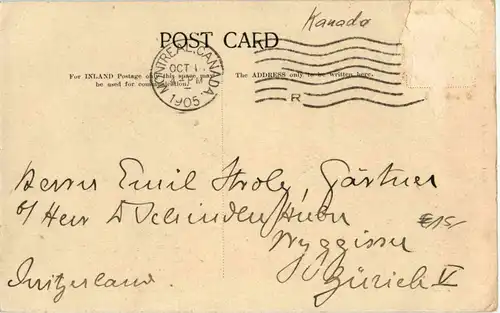 Kanada
POST CARD
MONTREAL, CANADA
OCT 1
PM
1905
R
For INLAND Postage only this space may
be used for communication.
The ADDRESS only to be written here.
Herrn Emil Stroly, Gärtner
c/ Herr D Schindler-Huber
€15/
Switzerland.
Zürich V